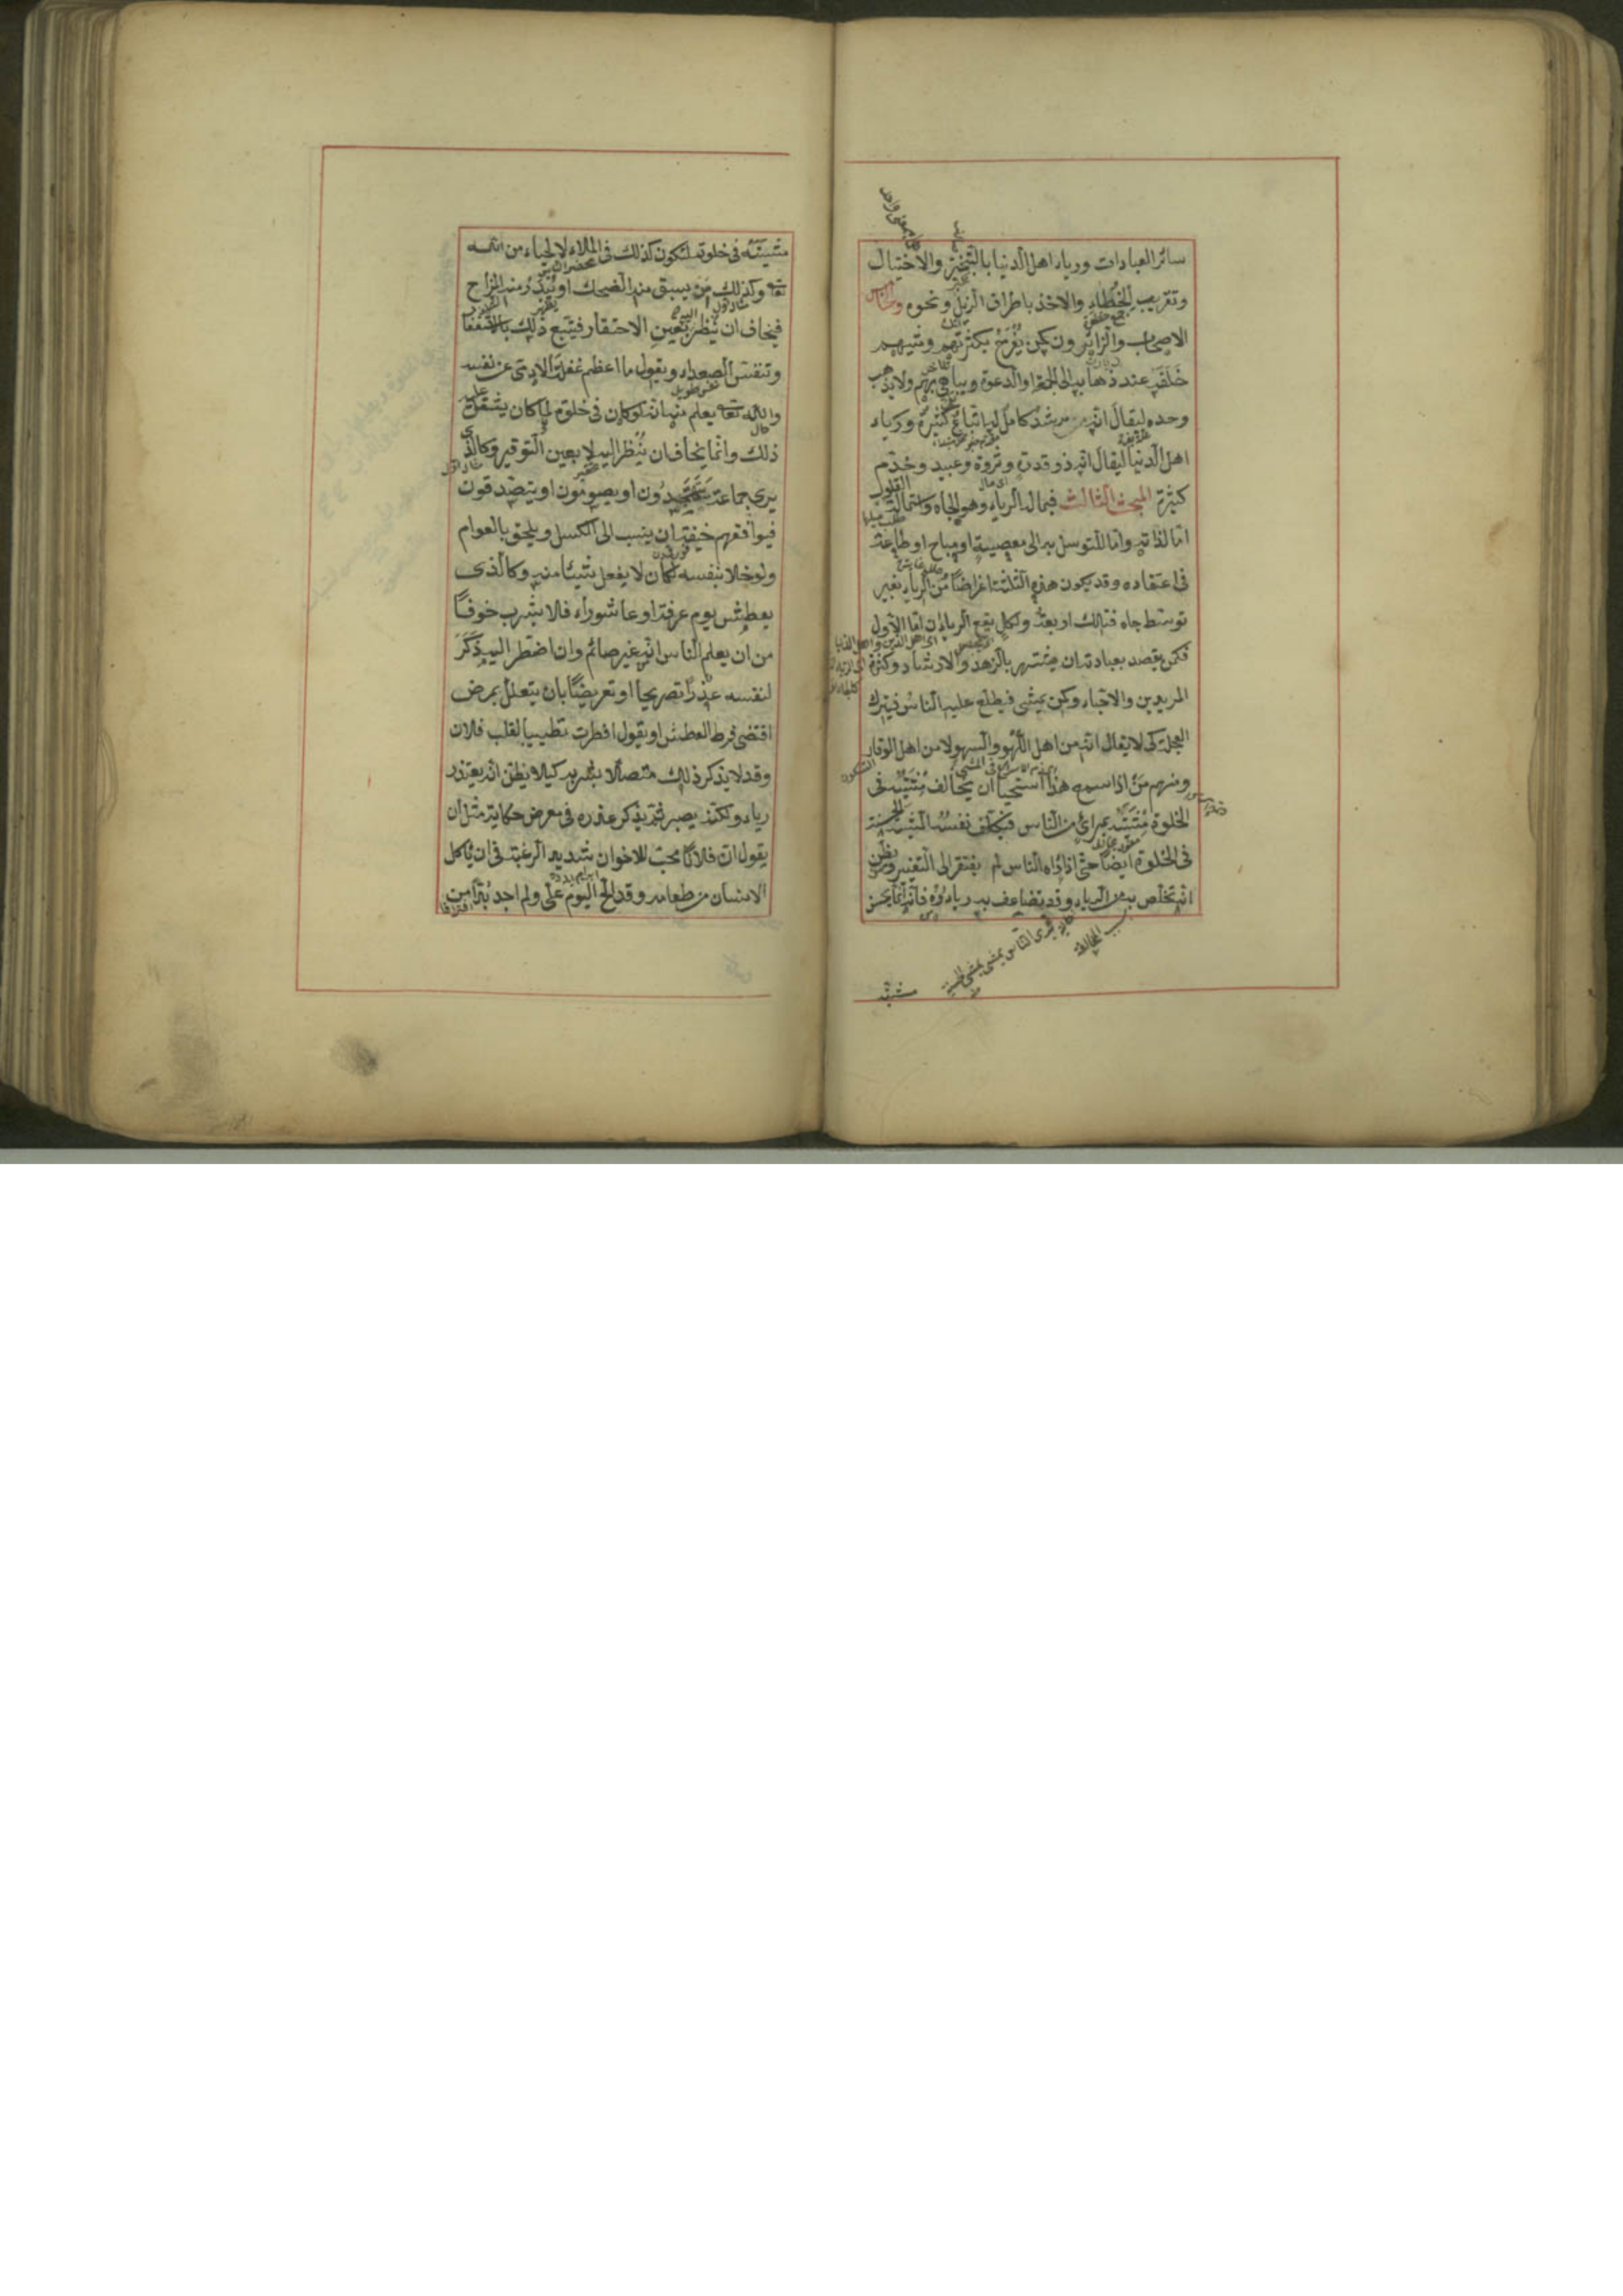 سائر العبادات ورياء اهل الدنيا بالتبختر والاختيال
وتقريب الخطاء والاخذ باطراف الذيل ونحوه والخامس
الاصحاب والزائرون كمن يفرح بكثرتهم ومشيهم
خلفه عند ذهابه الى الجمعة او الدعوة ويباهي بهم ولا يذهب
وحده ليقال انه مرشد كامل له اتباع كثيرة ورياء
اهل الدنيا ليقال انه ذو قدرة وثروة وعبيد وخدم
كثيرة المبحث الثالث فيما له الرياء وهو الجاه واستمالة القلوب
اما لذاته واما للتوسل به الى معصية او مباح او طاعة
في اعتقاده وقد يكون هذه الثلثة اغراضا من الرياء بغير
توسط جاه فتلك اربعة ولكل يقع الرياء ان اما الاول
فكمن يقصد بعبادته ان يشتهر بالزهد والارشاد وكثرة
المريدين والاحباء وكمن يمشي فيطلع عليه الناس فيترك
العجلة كي لا يقال انه من اهل اللهو والسهو لا من اهل الوقار
ومنهم من اذا سمع هذا استحيا ان يخالف مشيته في
الخلوة مشيته بمرائ من الناس فيكلف نفسه المشية الحسنة
في الخلوة ايضا حتى اذا رآه الناس لم يفتقر الى التغيير ويظن
انه تخلص به من الرياء وقد تضاعف به رياؤه فانه انما يحسن
مشيته
مشيته في خلوته لتكون كذلك في الملاء لا لحياء من الله
تعا وكذلك من يسبق منه الضحك او يبدر منه المزاح
فيخاف ان ينظر بعين الاحتقار فيتبع ذلك بالاستغفار
وتنفس الصعداء ويقول ما اعظم غفلة الادمي عن نفسه
والله تعا يعلم منه انه لو كان في خلوة لما كان يثقل عليه
ذلك وانما يخاف ان ينظر اليه لا بعين التوقير وكالذي
يرى جماعة يتهجدون او يصومون او يتصدقون
فيوافقهم خيفة ان ينسب الى الكسل ويلحق بالعوام
ولو خلا بنفسه لكان لا يفعل شيئا منه وكالذي
يعطش يوم عرفة او عاشوراء فلا يشرب خوفا
من ان يعلم الناس انه غير صائم وان اضطر اليه ذكر
لنفسه عذرا تصريحا او تعريضا بان يتعلل بمرض
اقتضى فرط العطش او يقول افطرت تطييبا لقلب فلان
وقد لا يذكر ذلك متصلا بشربه كيلا يظن انه يعتذر
رياء ولكنه يصبر ثم يذكر عذره في معرض حكاية مثل ان
يقول ان فلانا محب للاخوان شديد الرغبة في ان ياكل
الانسان من طعامه وقد الح اليوم علي ولم اجد بدا من